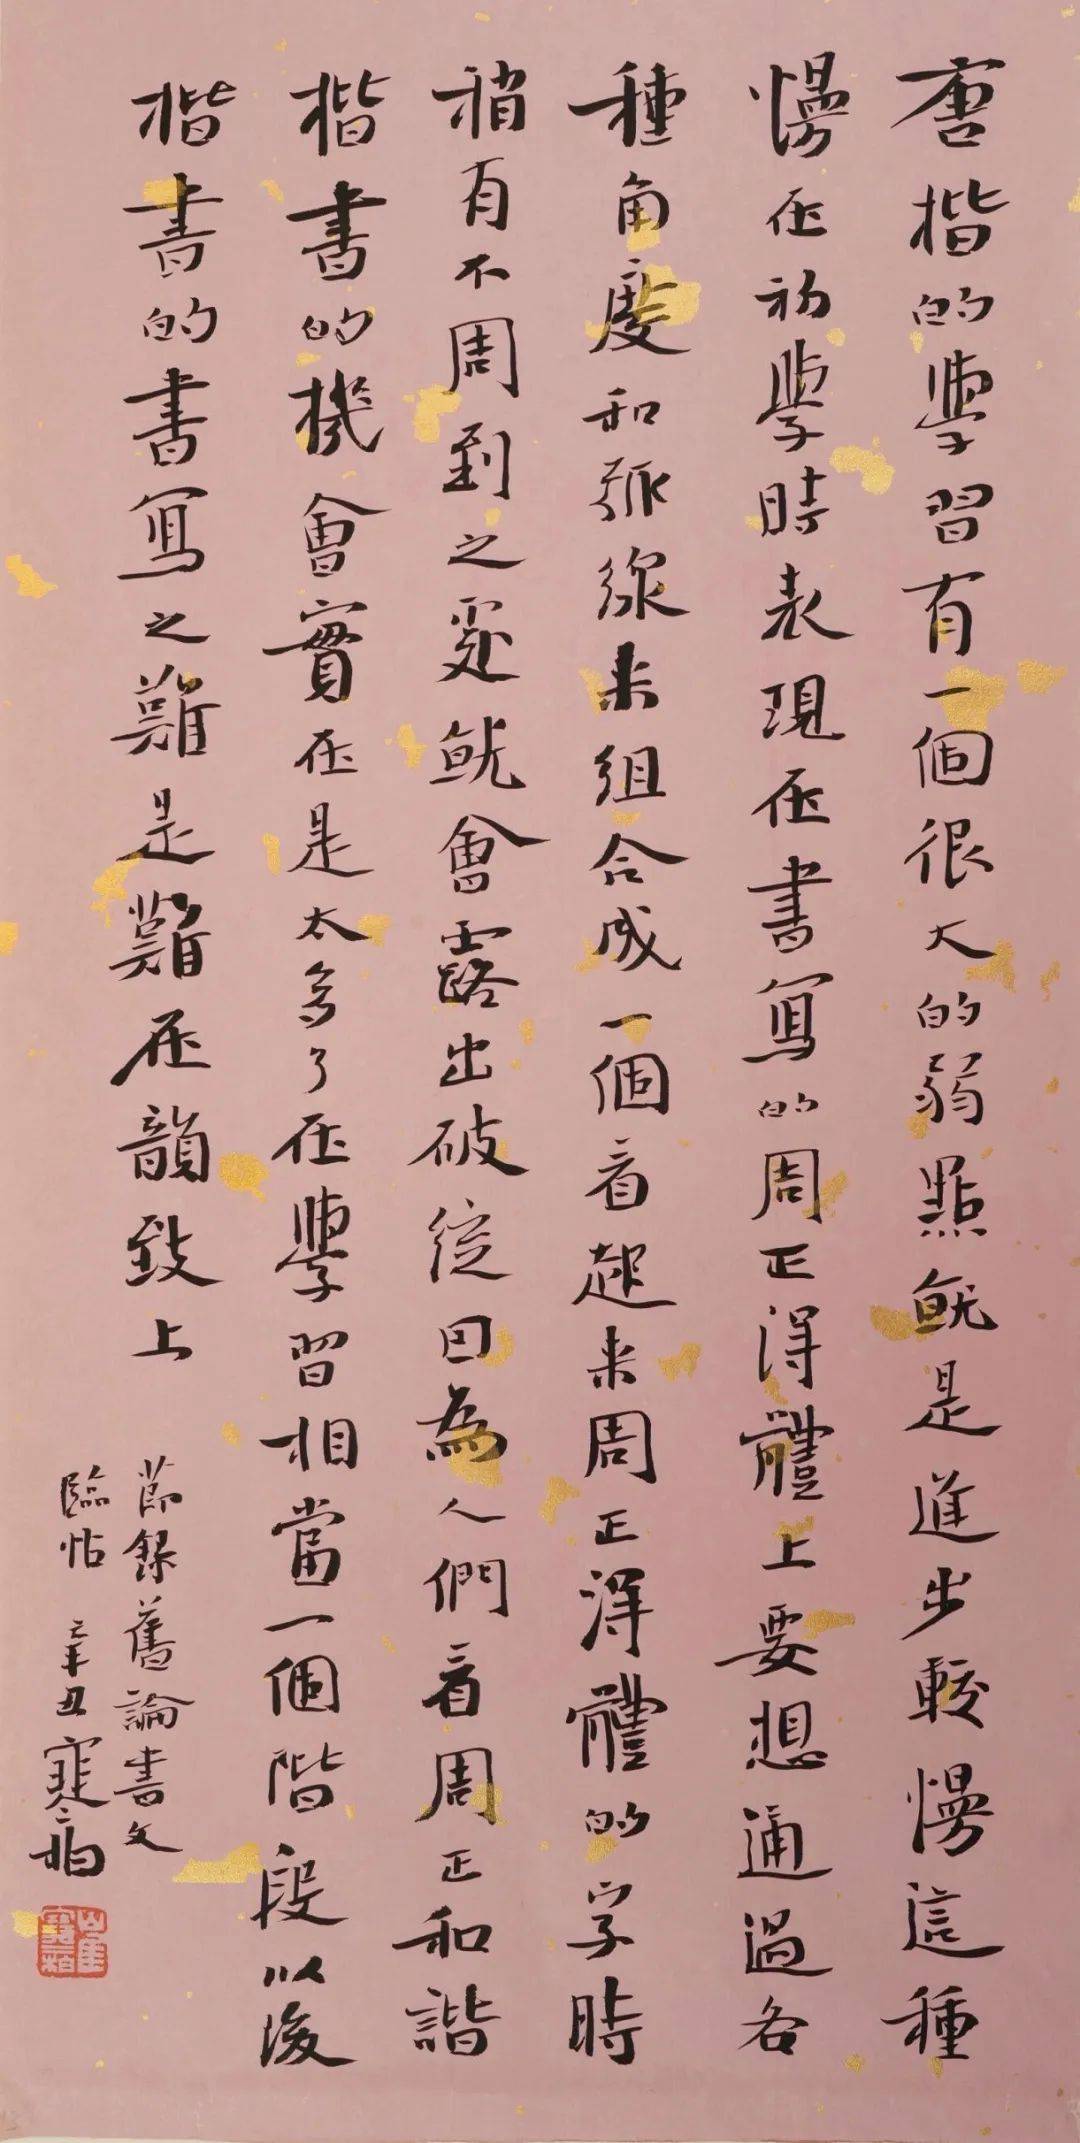 唐楷的學習有一個很大的弱點就是進步較慢這種
慢在初學時表現在書寫的周正得體上要想通過各
種角度和弧線來組合成一個看起來周正得體的字時
稍有不周到之處就會露出破綻因為人們看周正和諧
楷書的機會實在是太多了在學習相當一個階段以後
楷書的書寫之難是難在韻致上
節錄舊論書文
臨帖 辛丑寒柏
崔寒柏